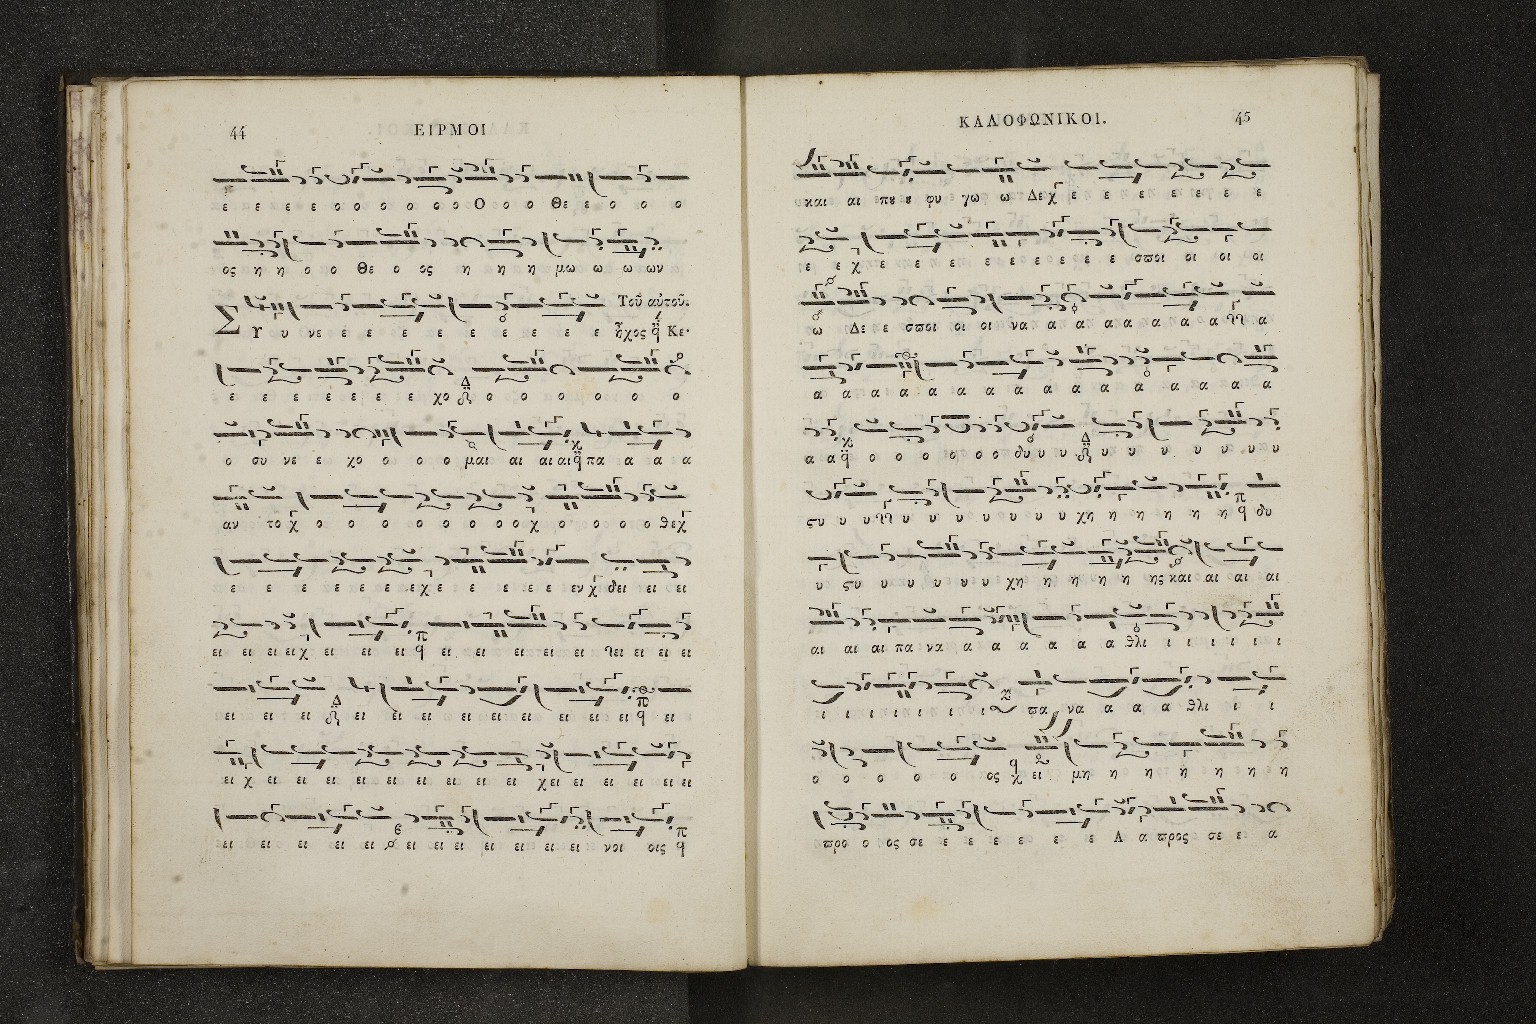 44
ΕΙΡΜΟΙ
ε ε ε ε ο ο ο ο ο ο Ο ο ο Θε ε ο ο ο
ος η η ο ο Θε ο ος η η η μω ω ω ων
Τοῦ αὐτοῦ.
Σ Υ υ νε ε ε ε ε ε ε ε ε ε ε ἦχος Κε·
ε ε ε ε ε ε ε χο ο ο ο ο ο ο ο
ο συ νε ε χο ο ο ο μαι αι αι αι πα α α α
αν το χ ο ο ο ο ο ο ο ο χ ο ο ο ο θεχ
ε ε ε ε ε ε ε χε ε ε ε ε ε εν χ θει ει ει
ει ει ει ει χ ει ει ει ει ει ει ει ει ει ει
ει ει ει ει ει ει ει ει ει ει ει ει ει
ει χ ει ει ει ει ει ει ει ει ει χει ει ει ει ει ει
ει ει ει ει ει ει ει ει ει ει ει ει νοι οις
ΚΑΛΟΦΩΝΙΚΟΙ.
45
και αι που ου φυ γω ω Δεχ ε ε ε ε ε ε ε
ε ε χ ε ε ε ε ε ε ε ε ε ε σποι οι οι οι
ω Δε ε σποι οι οι να α α α α α α α α
α α α α α α α α α α α α α α α α α
α α ο ο ο ο ο ο δυ υ υ υ υ υ υ υ υ υ
ςυ υ υ υ υ υ υ υ υ υ χη η η η η η δυ
υ ςυ υ υ υ υ υ υ χη η η η η ης και αι αι αι
αι αι αι πα να α α α α α θλι ι ι ι ι ι
ι ι ι ι ι ι ι πα να α α α θλι ι ι
ο ο ο ο ο ος χ ει μη η η η η η η η
προ ο ος σε ε ε ε ε ε ε Α α προς σε ε α